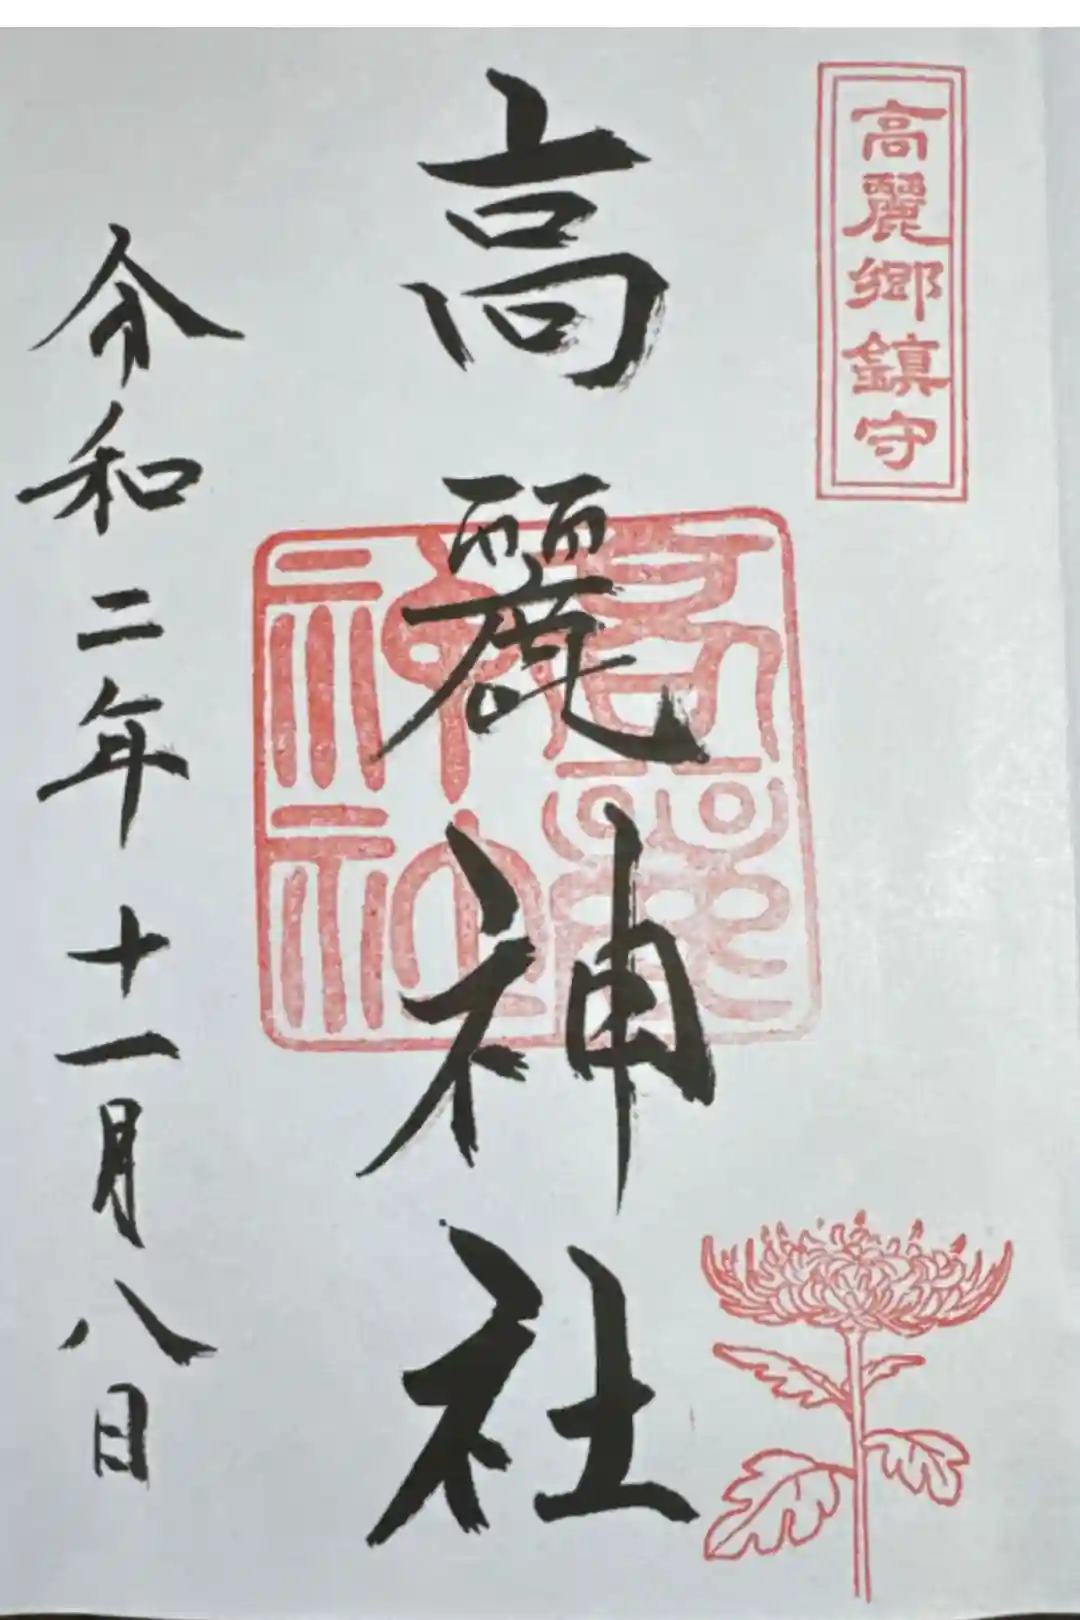 高麗郷鎮守
高麗神社
高麗神社
令和二年十一月八日